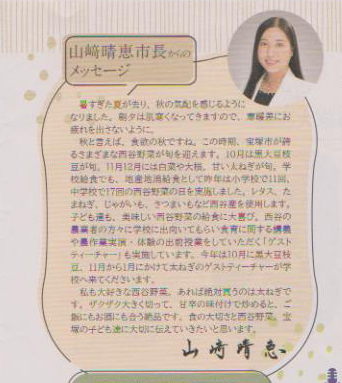 山﨑晴恵市長からの
メッセージ
暑すぎた夏が去り、秋の気配を感じるように
なりました。朝夕は肌寒くなってきますので、寒暖差にお
疲れを出さないように。
秋と言えば、食欲の秋ですね。この時期、宝塚市が誇
るさまざまな西谷野菜が旬を迎えます。10月は黒大豆枝
豆が旬。11月12月には白菜や大根、甘い太ねぎが旬。学
校給食でも、地産地消給食として昨年は小学校で11回、
中学校で17回の西谷野菜の日を実施しました。レタス、た
まねぎ、じゃがいも、さつまいもなど西谷産を使用します。
子ども達も、美味しい西谷野菜の給食に大喜び。西谷の
農業者の方々に学校に出向いてもらい食育に関する講義
や農作業実演・体験の出前授業をしていただく「ゲスト
ティーチャー」も実施しています。今年は10月に黒大豆枝
豆、11月から1月にかけて太ねぎのゲストティーチャーが学
校へ来てくださいます。
私も大好きな西谷野菜。あれば絶対買うのは太ねぎで
す。ザクザク大きく切って、甘辛の味付けで炒めると、ご
飯にもお酒にも合う絶品です。食の大切さと西谷野菜、宝
塚の子ども達に大切に伝えていきたいと思います。
山﨑晴恵